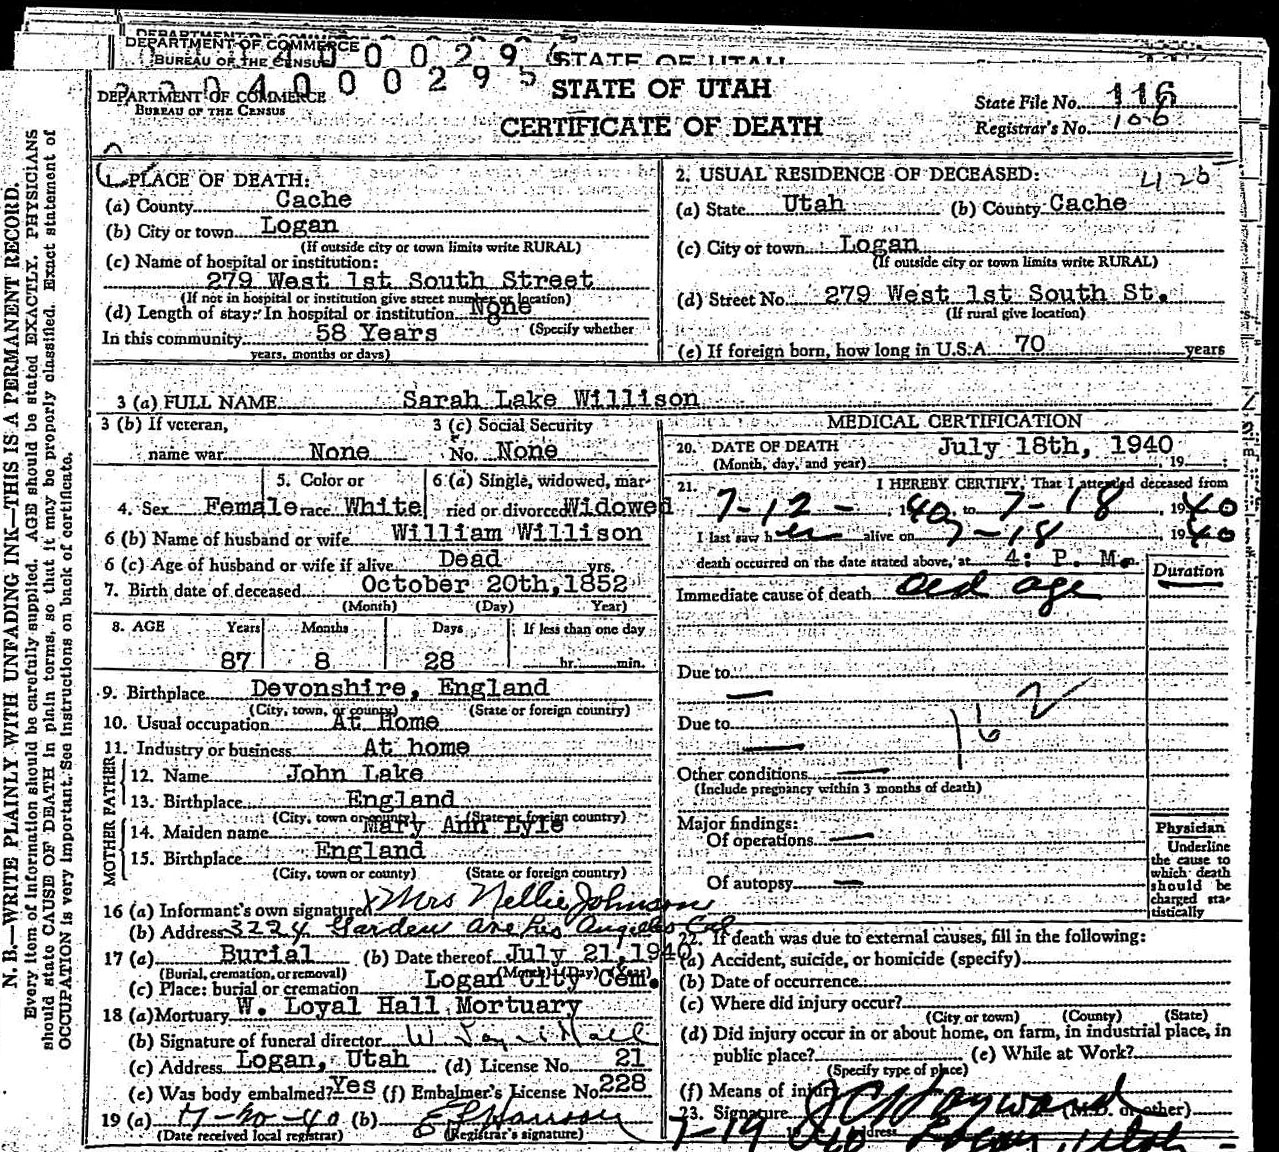 DEPARTMENT OF COMMERCE
BUREAU OF THE CENSUS
STATE OF UTAH
DEPARTMENT OF COMMERCE
BUREAU OF THE CENSUS
STATE OF UTAH
CERTIFICATE OF DEATH
State File No. 116
Registrar's No. 106
N. B.—WRITE PLAINLY WITH UNFADING INK—THIS IS A PERMANENT RECORD.
Every item of information should be carefully supplied. AGE should be stated EXACTLY. PHYSICIANS
should state CAUSE OF DEATH in plain terms, so that it may be properly classified. Exact statement of
OCCUPATION is very important. See instructions on back of certificate.
1. PLACE OF DEATH:
(a) County Cache
(b) City or town Logan
(If outside city or town limits write RURAL)
(c) Name of hospital or institution:
279 West 1st South Street
(If not in hospital or institution give street number or location)
(d) Length of stay: In hospital or institution None
(Specify whether
In this community 58 Years
years, months or days)
2. USUAL RESIDENCE OF DECEASED:
(a) State Utah (b) County Cache
(c) City or town Logan
(If outside city or town limits write RURAL)
(d) Street No. 279 West 1st South St.
(If rural give location)
(e) If foreign born, how long in U.S.A. 70 years
3 (a) FULL NAME Sarah Lake Willison
3 (b) If veteran,
name war None
3 (c) Social Security
No. None
4. Sex Female
5. Color or
race White
6 (a) Single, widowed, mar-
ried or divorced Widowed
6 (b) Name of husband or wife William Willison
6 (c) Age of husband or wife if alive Dead yrs.
7. Birth date of deceased October 20th, 1852
(Month) (Day) Year)
8. AGE Years Months Days If less than one day
87 8 28 hr. min.
9. Birthplace Devonshire, England
(City, town, or county) (State or foreign country)
10. Usual occupation At Home
11. Industry or business At home
FATHER
12. Name John Lake
13. Birthplace England
(City, town or county) (State or foreign country)
MOTHER
14. Maiden name Mary Ann Lyle
15. Birthplace England
(City, town or county) (State or foreign country)
16 (a) Informant's own signature X Mrs Nellie Johnson
(b) Address 3224 Garden Ave Los Angeles Cal
17 (a) Burial (b) Date thereof July 21, 1940
(Burial, cremation, or removal) (Month) (Day) (Year)
(c) Place: burial or cremation Logan City Cem.
18 (a) Mortuary W. Loyal Hall Mortuary
(b) Signature of funeral director W Loyal Hall
(c) Address Logan, Utah (d) License No. 21
(e) Was body embalmed? Yes (f) Embalmer's License No. 228
19 (a) 7-20-40 (b)
(Date received local registrar) (Registrar's signature)
MEDICAL CERTIFICATION
20. DATE OF DEATH July 18th, 1940
(Month, day, and year) , 19 ;
21. I HEREBY CERTIFY, That I attended deceased from
7-12- , 1940, to 7-18 , 1940
I last saw her alive on 7-18 , 1940
death occurred on the date stated above, at 4: P. M.
Duration
Immediate cause of death old age
Due to
Due to
162
Other conditions
(Include pregnancy within 3 months of death)
Major findings:
Of operations
Of autopsy
Physician
Underline
the cause to
which death
should be
charged sta-
tistically
22. If death was due to external causes, fill in the following:
(a) Accident, suicide, or homicide (specify)
(b) Date of occurrence
(c) Where did injury occur?
(City or town) (County) (State)
(d) Did injury occur in or about home, on farm, in industrial place, in
public place? (e) While at Work?
(Specify type of place)
(f) Means of injury
23. Signature J C Hayward (M.D. or other)
7-19 Address Logan, Utah